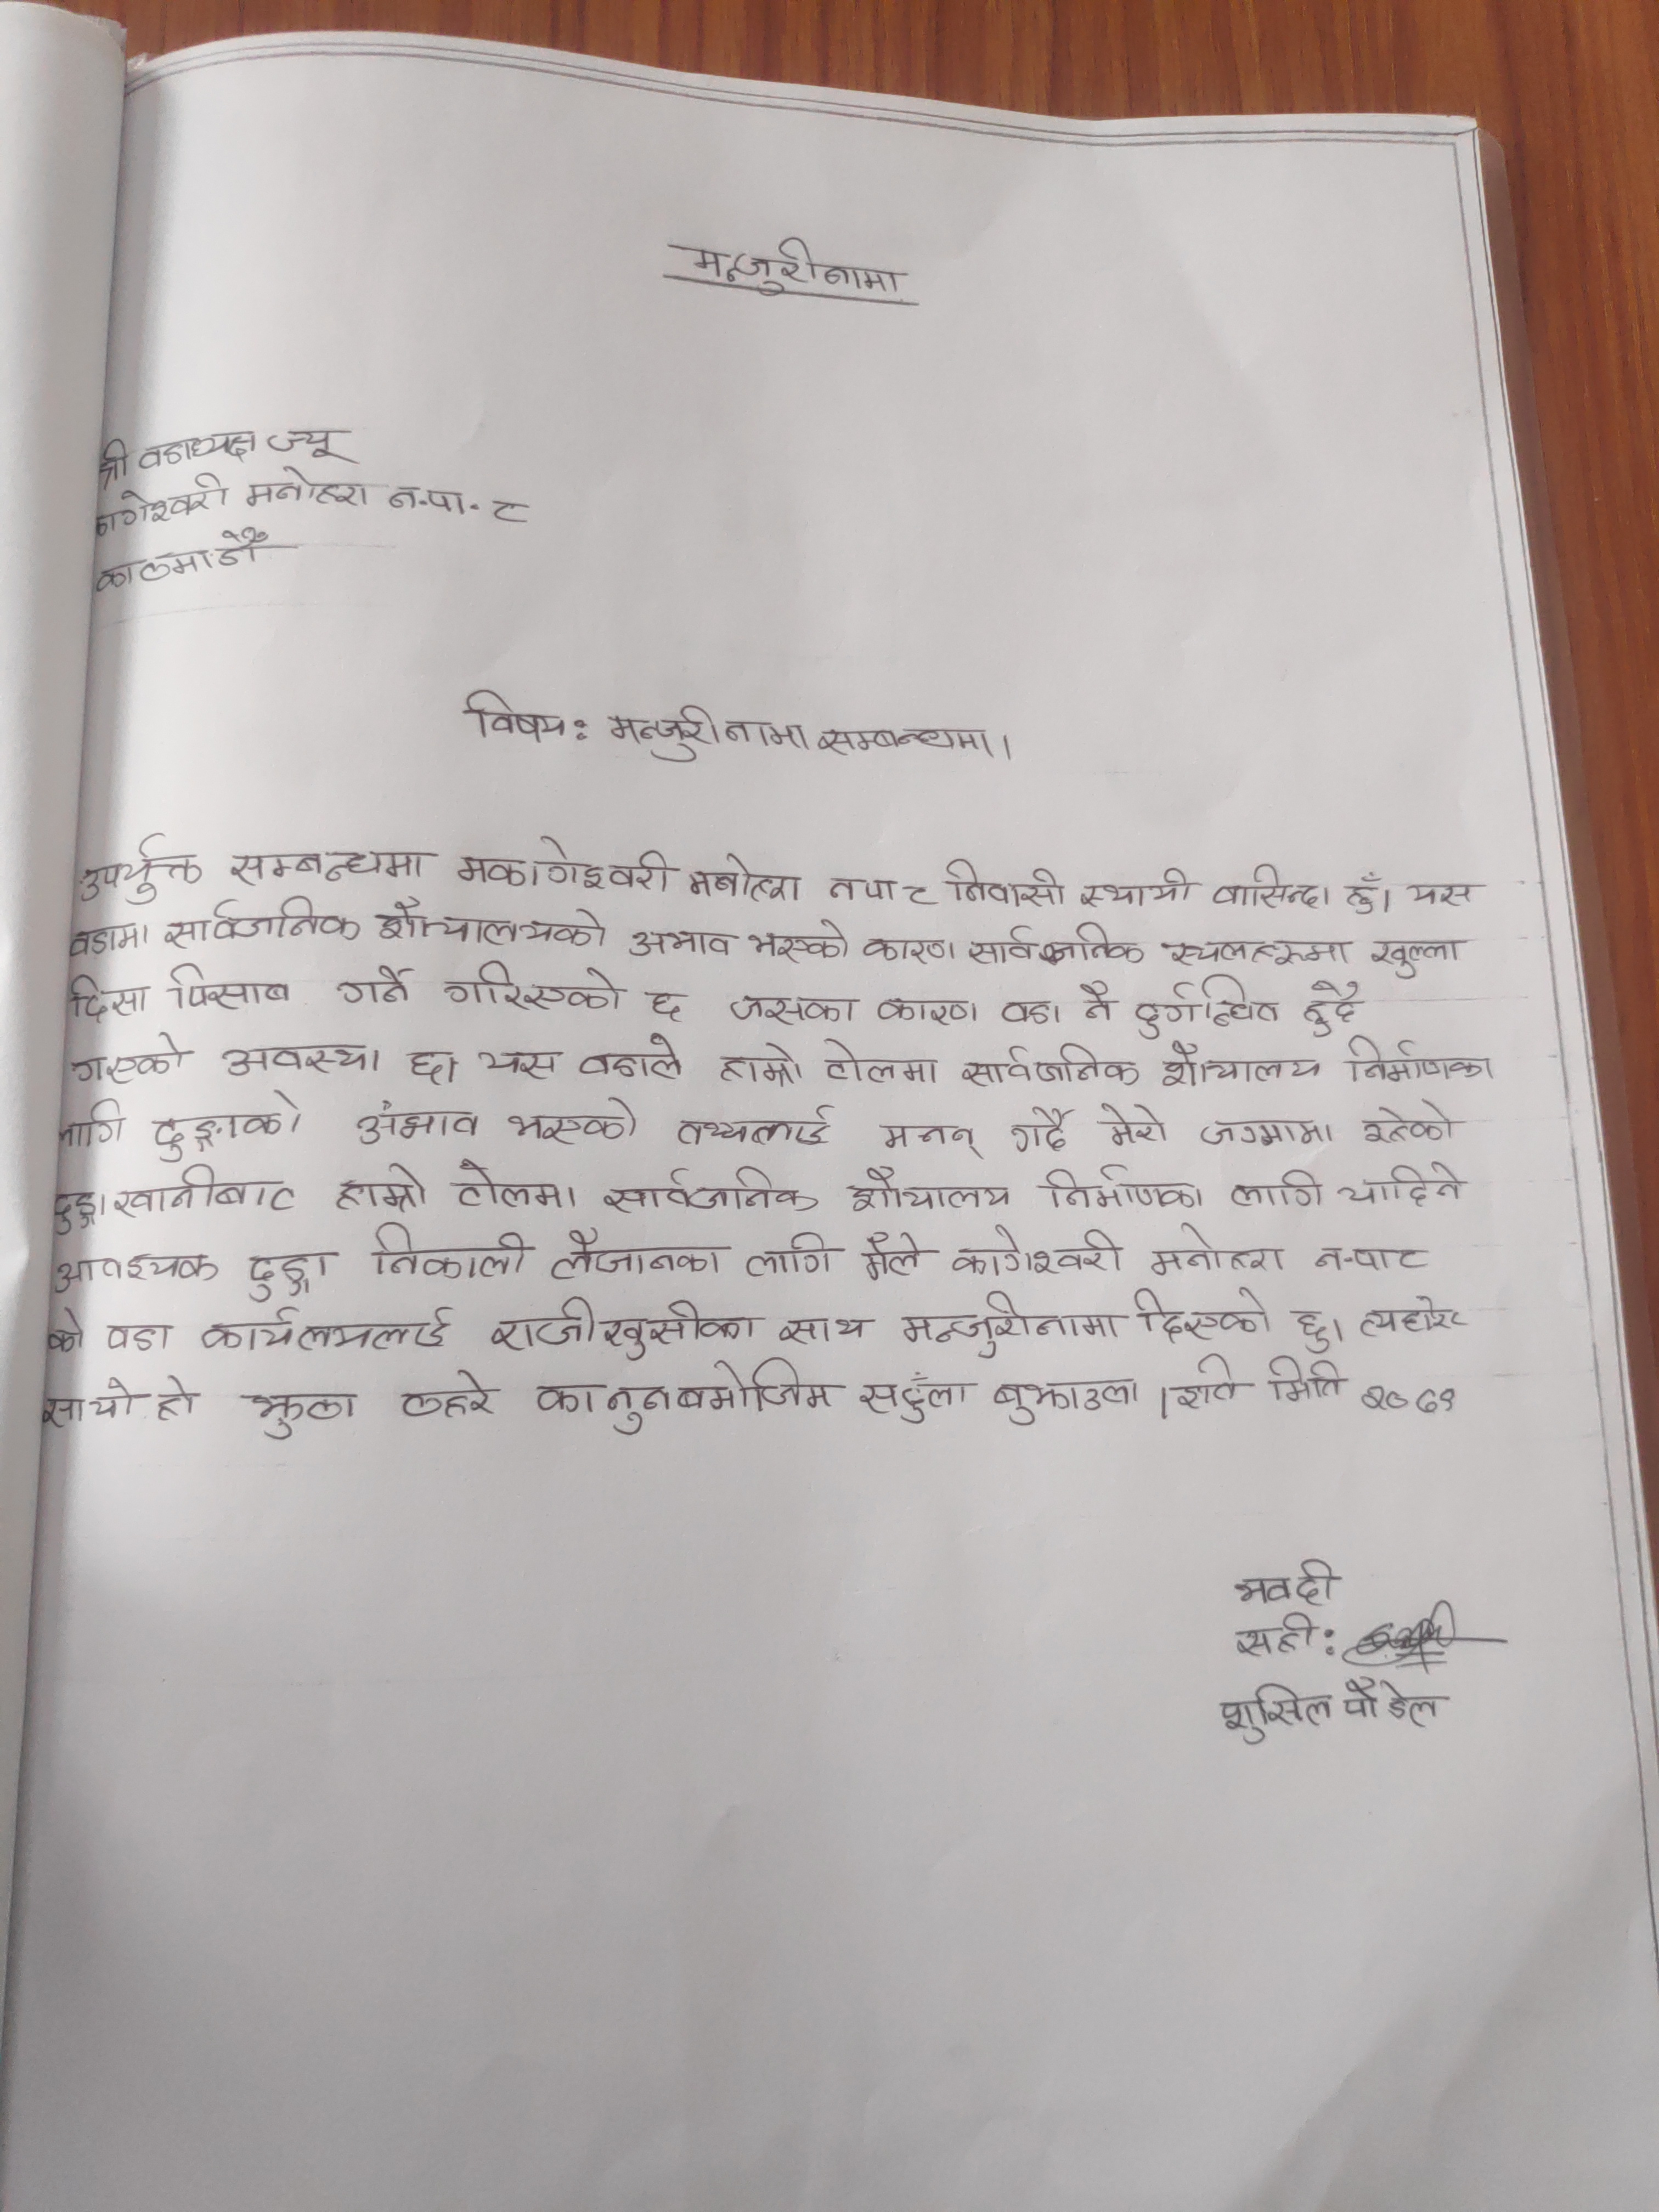 मन्जुरीनामा
श्री वडाध्यक्ष ज्यू
कागेश्वरी मनोहरा न.पा. ८
काठमाडौँ
विषय: मन्जुरीनामा सम्बन्धमा।
उपर्युक्त सम्बन्धमा म कागेश्वरी मनोहरा नपा ८ निवासी स्थायी वासिन्दा हुँ। यस
वडामा सार्वजनिक शौचालयको अभाव भएको कारण सार्वजनिक स्थलहरुमा खुल्ला
दिसा पिसाब गर्ने गरिएको छ जसका कारण वडा नै दुर्गन्धित हुदै
गएको अवस्था छ। यस वडाले हाम्रो टोलमा सार्वजनिक शौचालय निर्माणका
लागि ढुङ्गाको अभाव भएको तथ्यलाई मनन् गर्दै मेरो जग्गामा रहेको
ढुङ्गा खानीबाट हाम्रो टोलमा सार्वजनिक शौचालय निर्माणका लागि चाहिने
आवश्यक ढुङ्गा निकाली लैजानका लागि मैले कागेश्वरी मनोहरा न.पा ८
को वडा कार्यलयलाई राजीखुसीका साथ मन्जुरीनामा दिएको छु। त्यहारेट
साचो हो झुठा ठहरे कानुनबमोजिम सहुँला बुझाउला। इति मिति २०७९
भवदी
सही:
शुसिल पौडेल